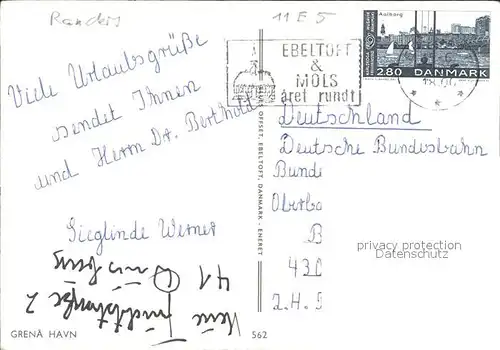 Randers
11 E 5
Viele Urlaubsgrüße
sendet Ihnen
und Herrn Dr. Berthold
Sieglinde Werner
EBELTOFT
&
MOLS
året rundt
Aalborg
2.80 DANMARK
Deutschland
Deutsche Bundesbahn
Bunde
Oberba
B
430
z.H. S
privacy protection
Datenschutz
OFFSET, EBELTOFT, DANMARK - ENERET
41
Neue
2
GRENÅ HAVN
562